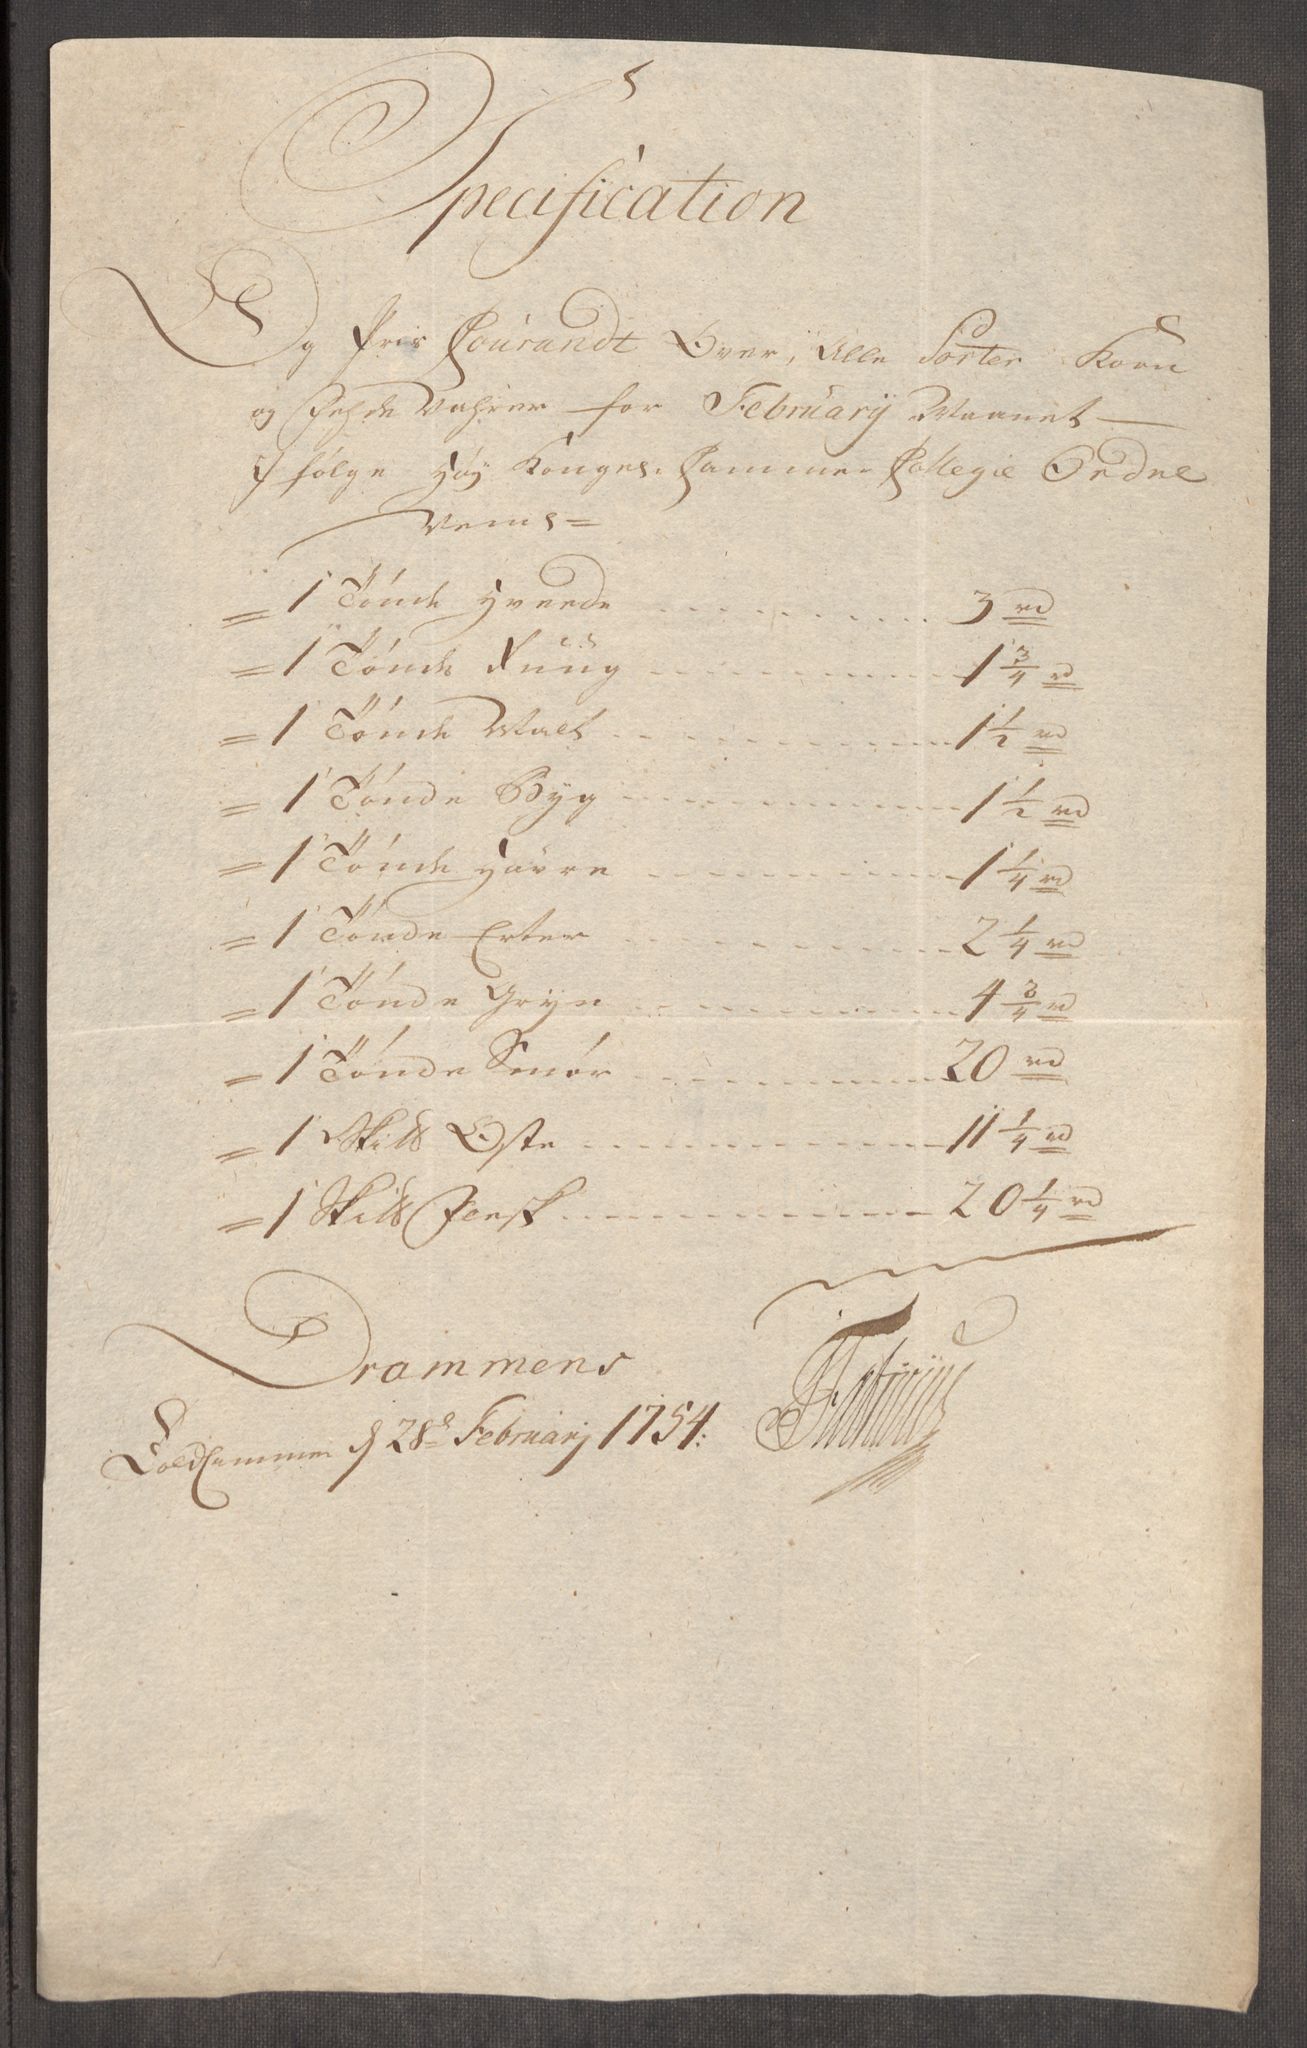 Specification
Og Pris Courandt Over, Alle Sorter Korn
og Fehde Vahrer for February Maanet
J følge Høy Konges. Cammer Collegie Ordre
Nemlig=
= 1 Tønde Hveede 3 rd
= 1 Tønde Rúúg 1 3/4 rd
= 1 Tønde Malt 1 1/2 rd
= 1 Tønde Byg 1 1/2 rd
= 1 Tønde Havre 1 1/4 rd
= 1 Tønde Erter 2 1/4 rd
= 1 Tønde Gryn 4 3/4 rd
= 1 Tønde Smør 20 rd
= 1 Skilb Oste 11 1/4 rd
= 1 Skilb Flesk 20 1/4 rd
Drammens
Toldkammer d 28de February 1754: